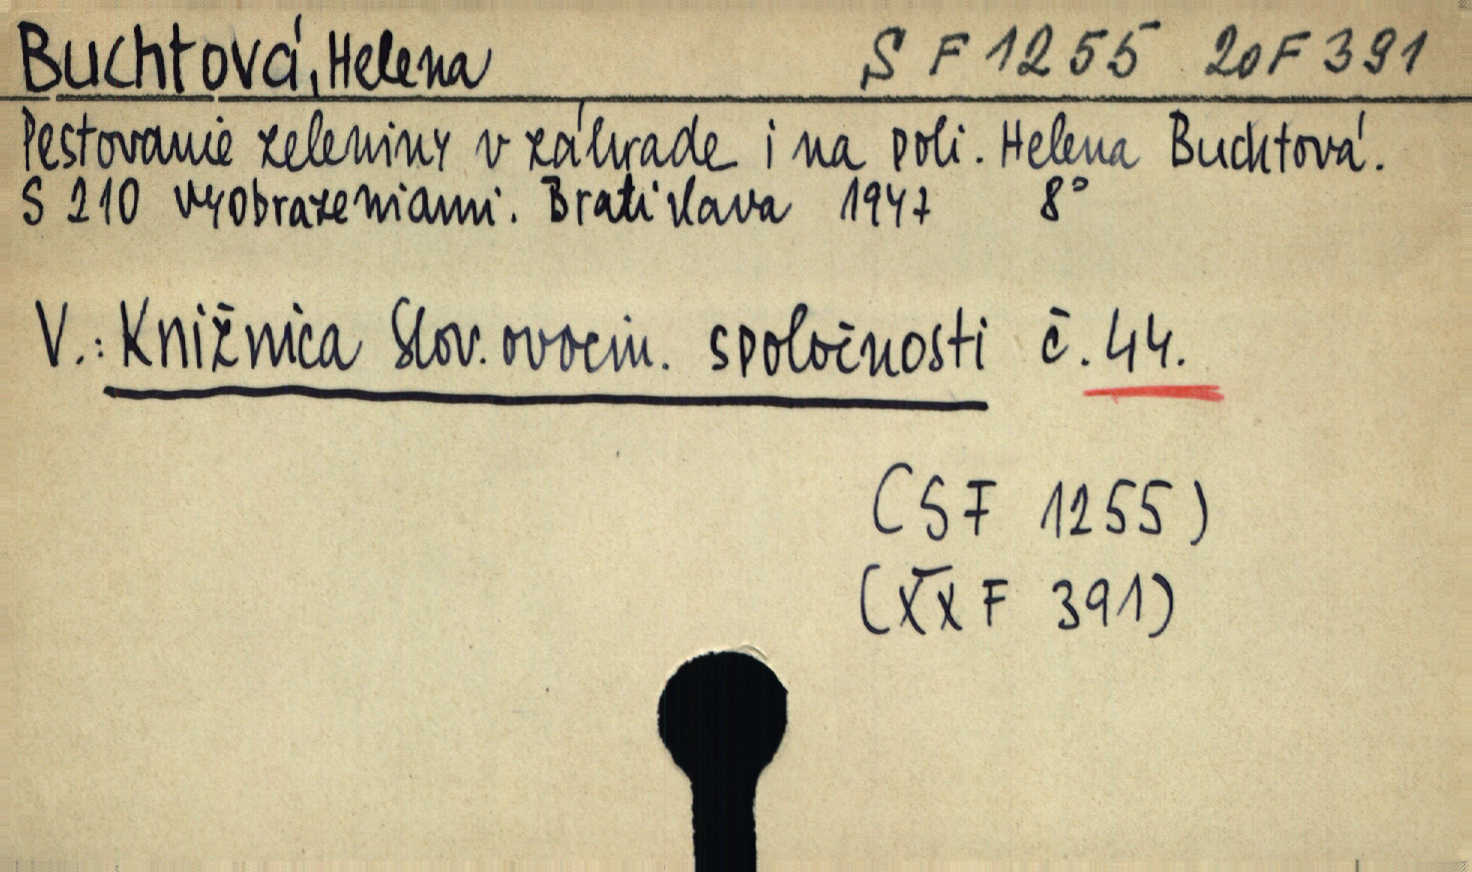 Buchtová, Helena SF 1255 20F 391
Pestovanie zeleniny v záhrade i na poli. Helena Buchtová.
S 210 vyobrazeniami. Bratislava 1947 8°
V.: Knižnica Slov. ovocin. spoločnosti č. 44.
(SF 1255)
(XX F 391)